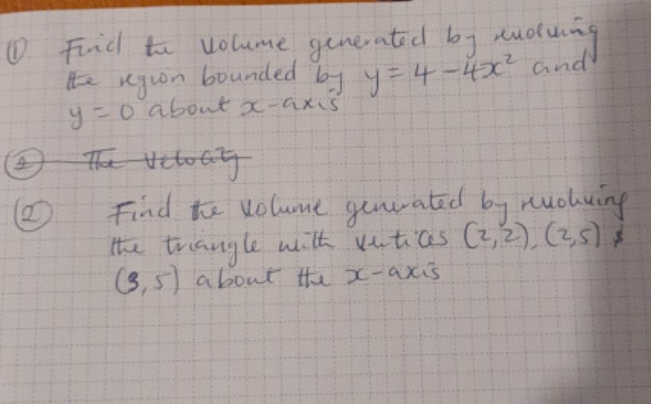 ① Find the volume generated by revolving
the region bounded by y = 4 - 4x² and
y = 0 about x-axis
② The velocity
② Find the volume generated by revolving
the triangle with vertices (2,2), (2,5) &
(3,5) about the x-axis